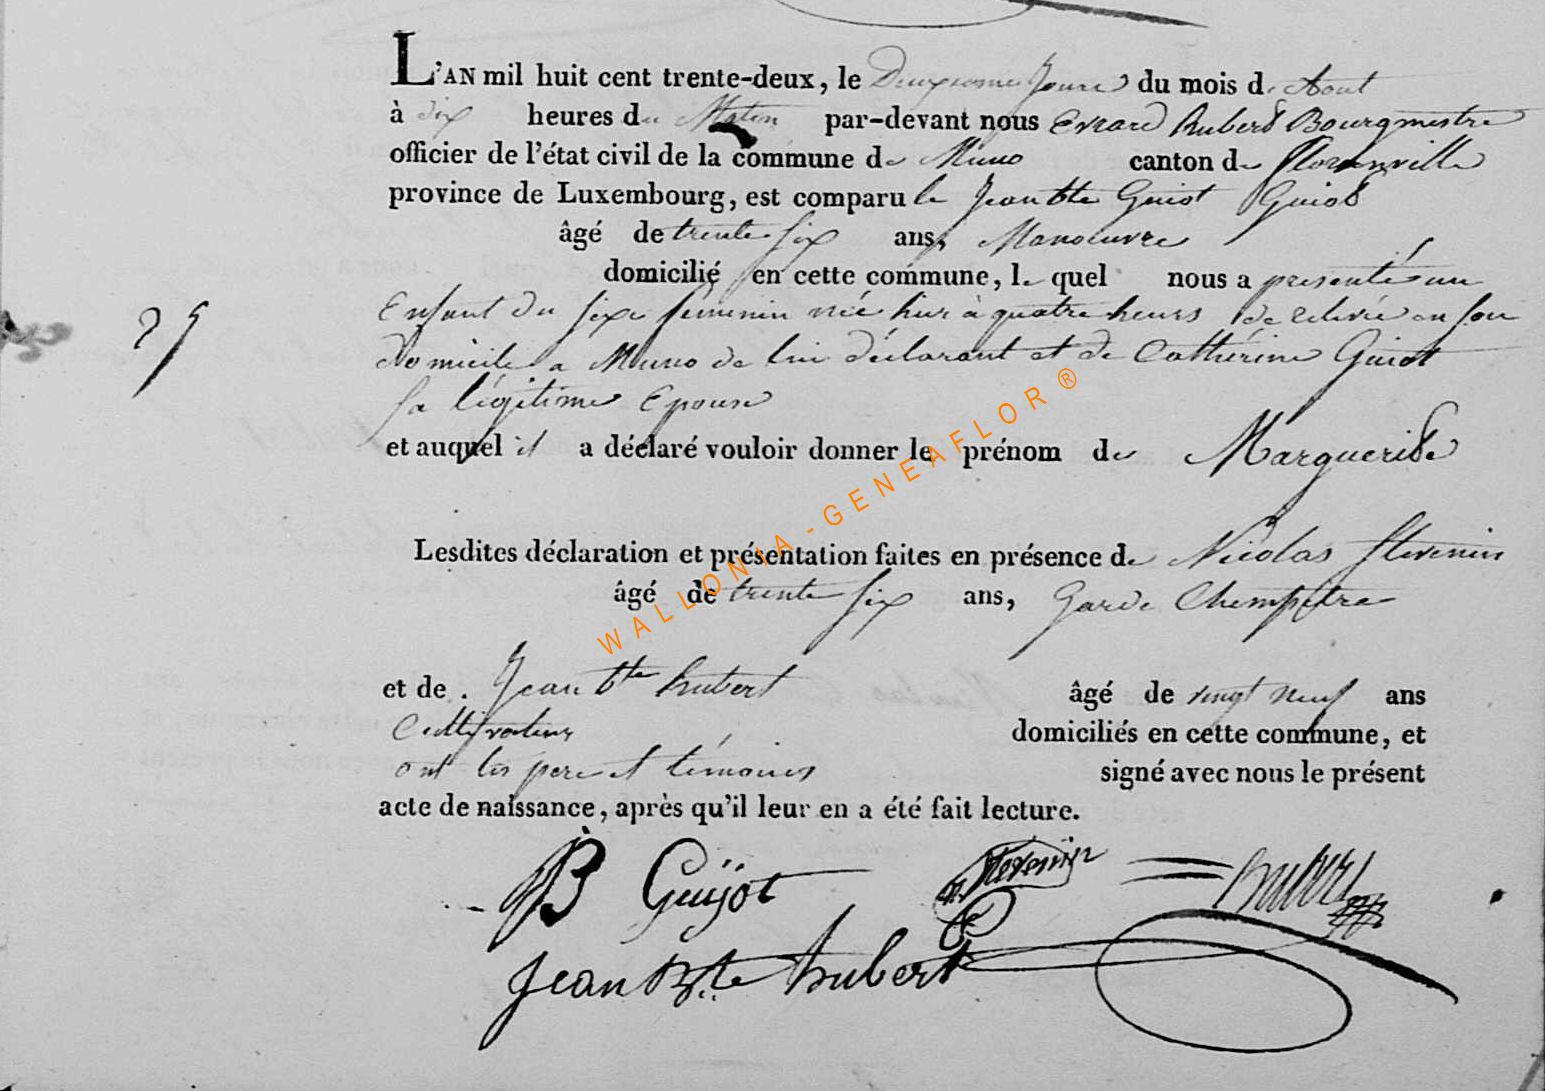 L'AN mil huit cent trente-deux, le Deuxieme Jour du mois d'Aout
à dix heures du Matin par-devant nous Evrard hubert Bourgmestre
officier de l'état civil de la commune de Muno canton de florenville
province de Luxembourg, est comparu le Jean bte Guiot Guiot
âgé de trente six ans, Manoeuvre
domicilié en cette commune, le quel nous a presenté un
Enfant du sexe feminin née hier à quatre heurs de relevée en son
domicile a Muno de lui déclarant et de Cathérine Guiot
29
sa légitime Epouse
et auquel il a déclaré vouloir donner le prénom de Marguerite
Lesdites déclaration et présentation faites en présence de Nicolas Stevenin
âgé de trente six ans, Garde Champetre
et de Jean bte hubert âgé de vingt neuf ans
Cultivateur domiciliés en cette commune, et
ont les pere et témoins signé avec nous le présent
acte de naissance, après qu'il leur en a été fait lecture.
JB Guijot n. Stevenin hubert
Jean Bte hubert
WALLONIA-GENEAFLOR®